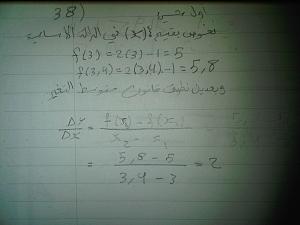 38) أول شي
نعوض بقيم (x) في الدالة الأساسية
f(3) = 2(3) - 1 = 5
f(3,4) = 2(3,4) - 1 = 5,8
وبعدين نطبق قانون متوسط التغير
Δy/Δx = f(x₂) - f(x₁) / x₂ - x₁
= 5,8 - 5 / 3,4 - 3 = 2